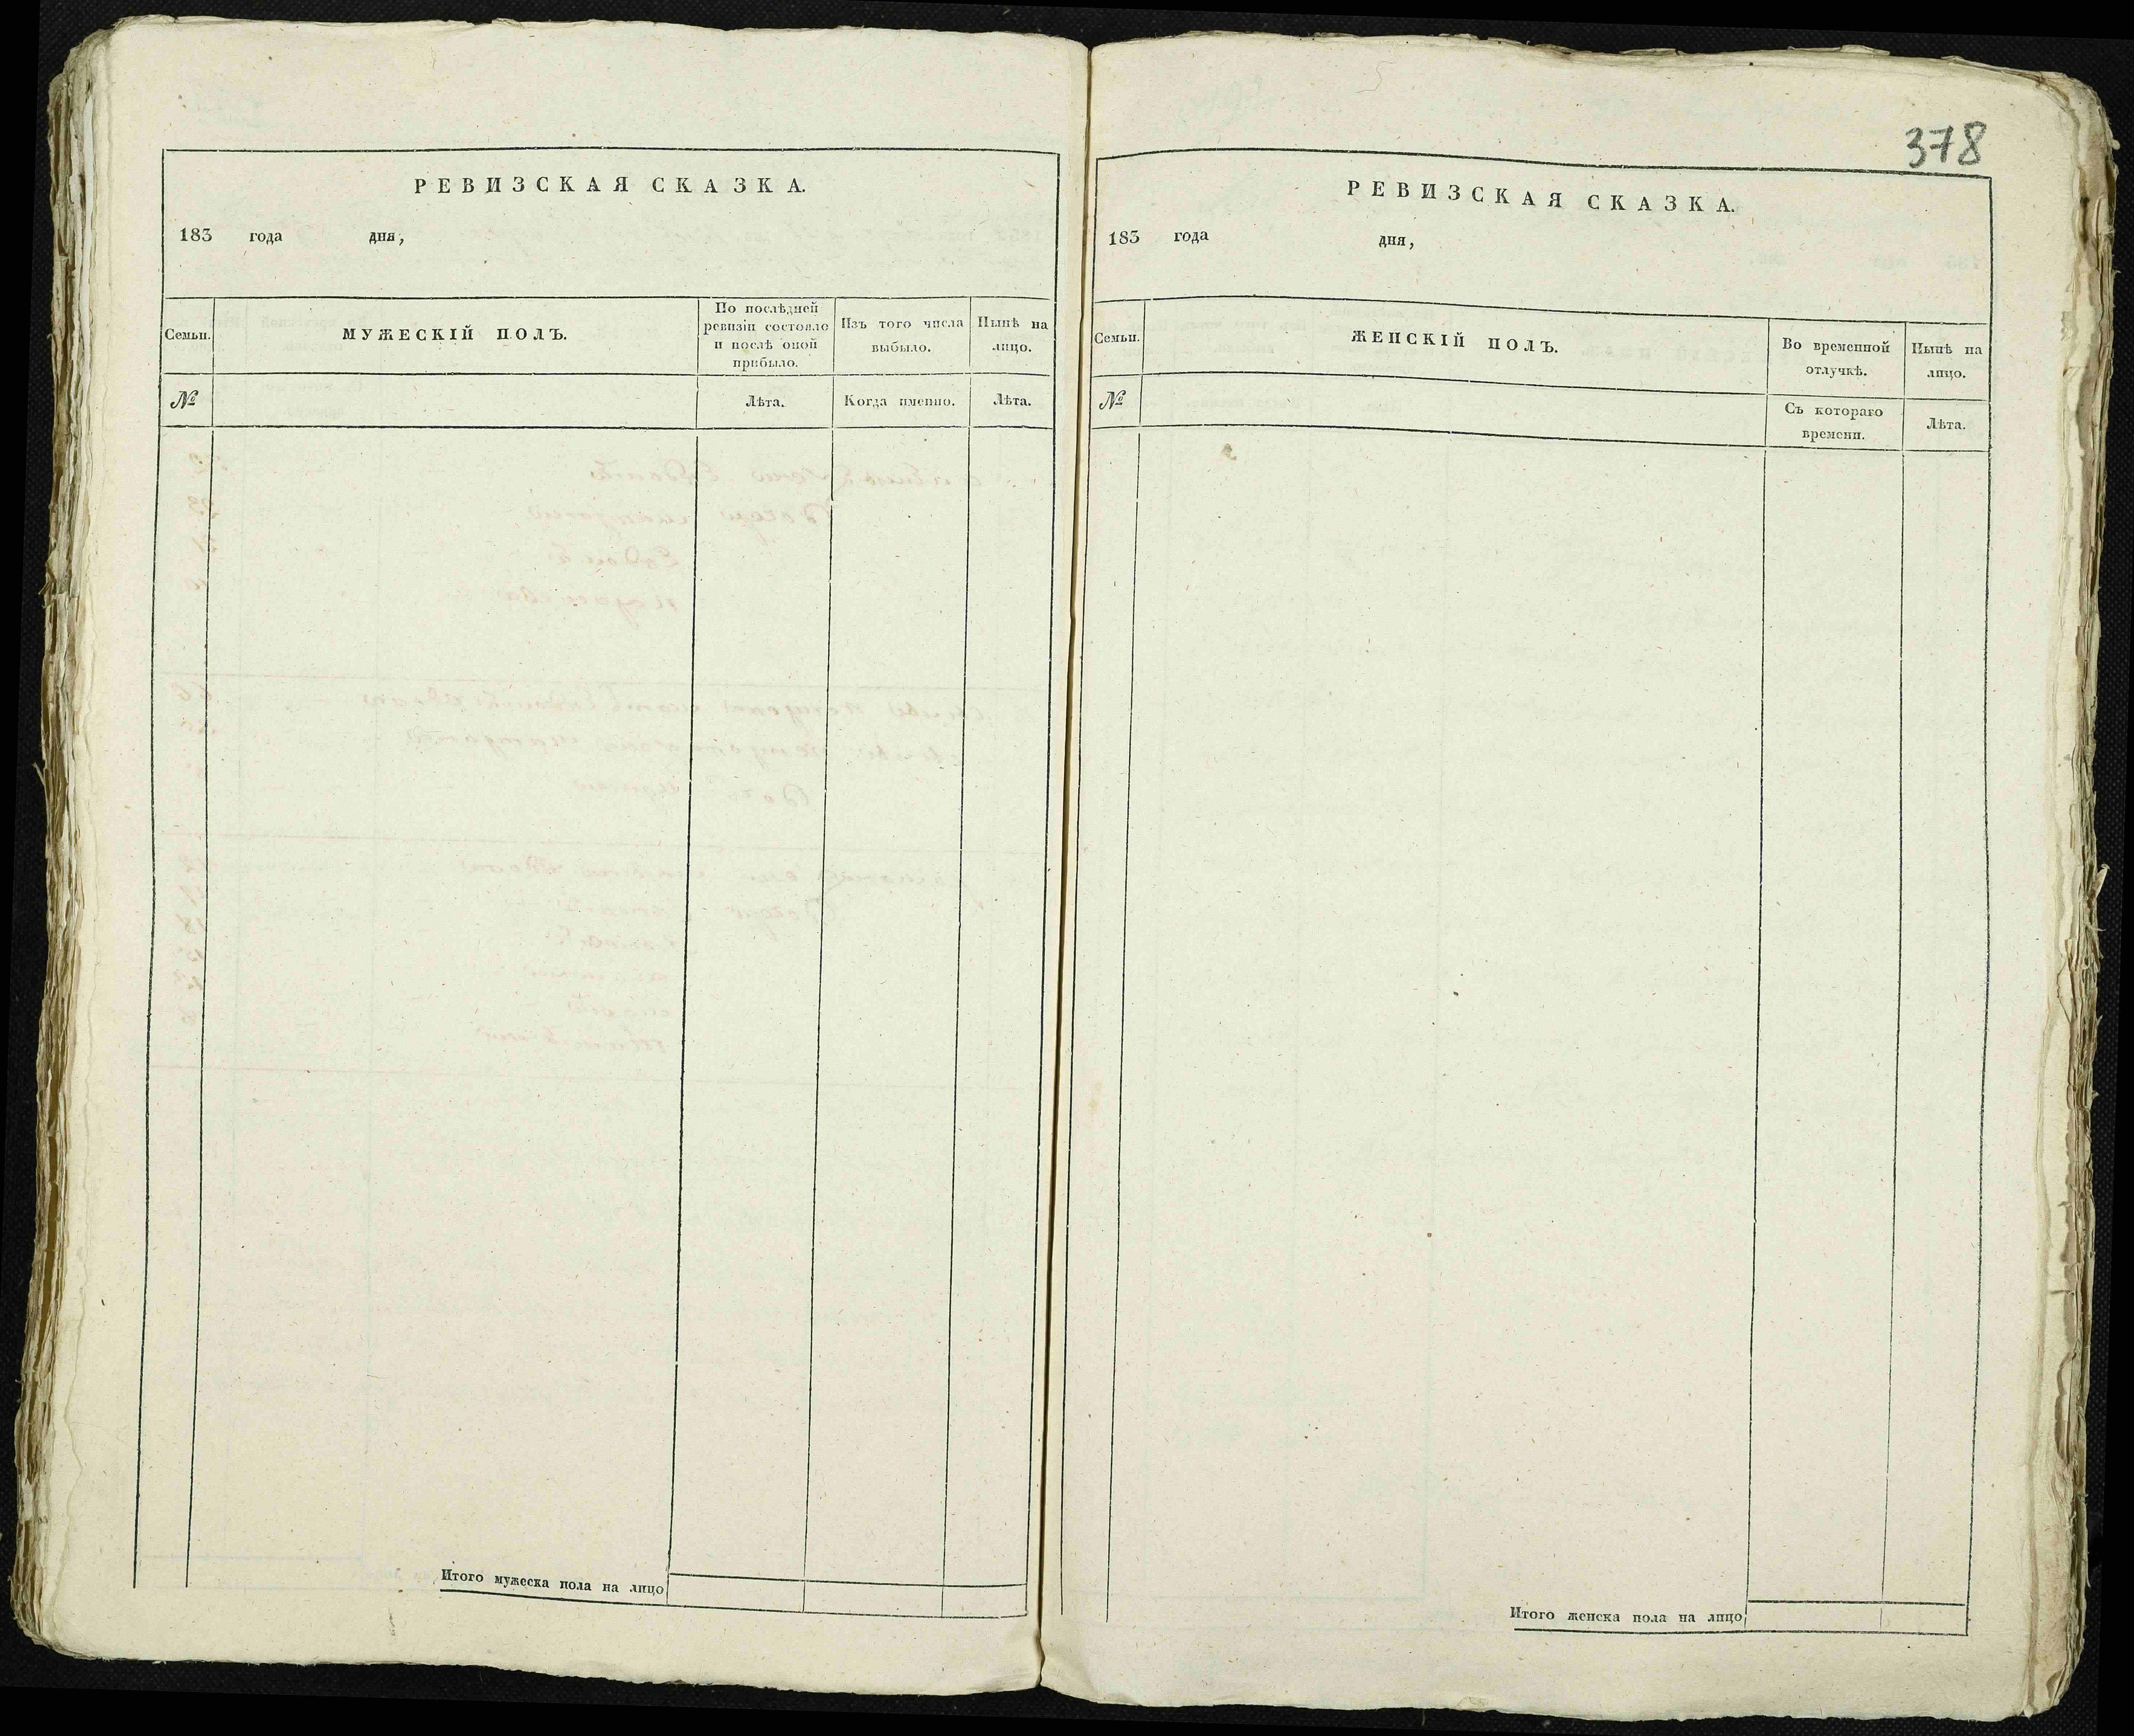 РЕВИЗСКАЯ СКАЗКА.
183 года дня,
Семьи.
МУЖЕСКІЙ ПОЛЪ.
По послѣдней
ревизіи состояло
и послѣ оной
прибыло.
Изъ того числа
выбыло.
Нынѣ на
лицо.
№
Лѣта.
Когда именно.
Лѣта.
Итого мужеска пола на лицо
378
РЕВИЗСКАЯ СКАЗКА.
183 года дня,
Семьи.
ЖЕНСКІЙ ПОЛЪ.
Во временной
отлучкѣ.
Нынѣ на
лицо.
№
Съ котораго
времени.
Лѣта.
Итого женска пола на лицо